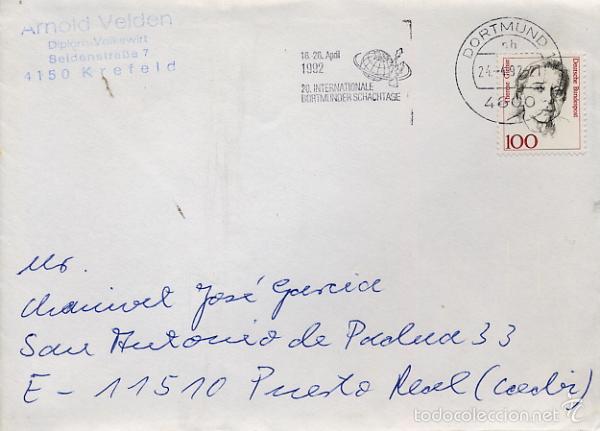 Arnold Velden
Diplom-Volkswirt
Seidenstraße 7
4150 Krefeld
16.-26. April
1992
20. INTERNATIONALE
DORTMUNDER SCHACHTAGE
DORTMUND
4600
Deutsche Bundespost
100
Mr.
Manuel José Garcia
San Antonio de Padua 33
E - 11510 Puerto Real (Cadiz)
todocoleccion.net